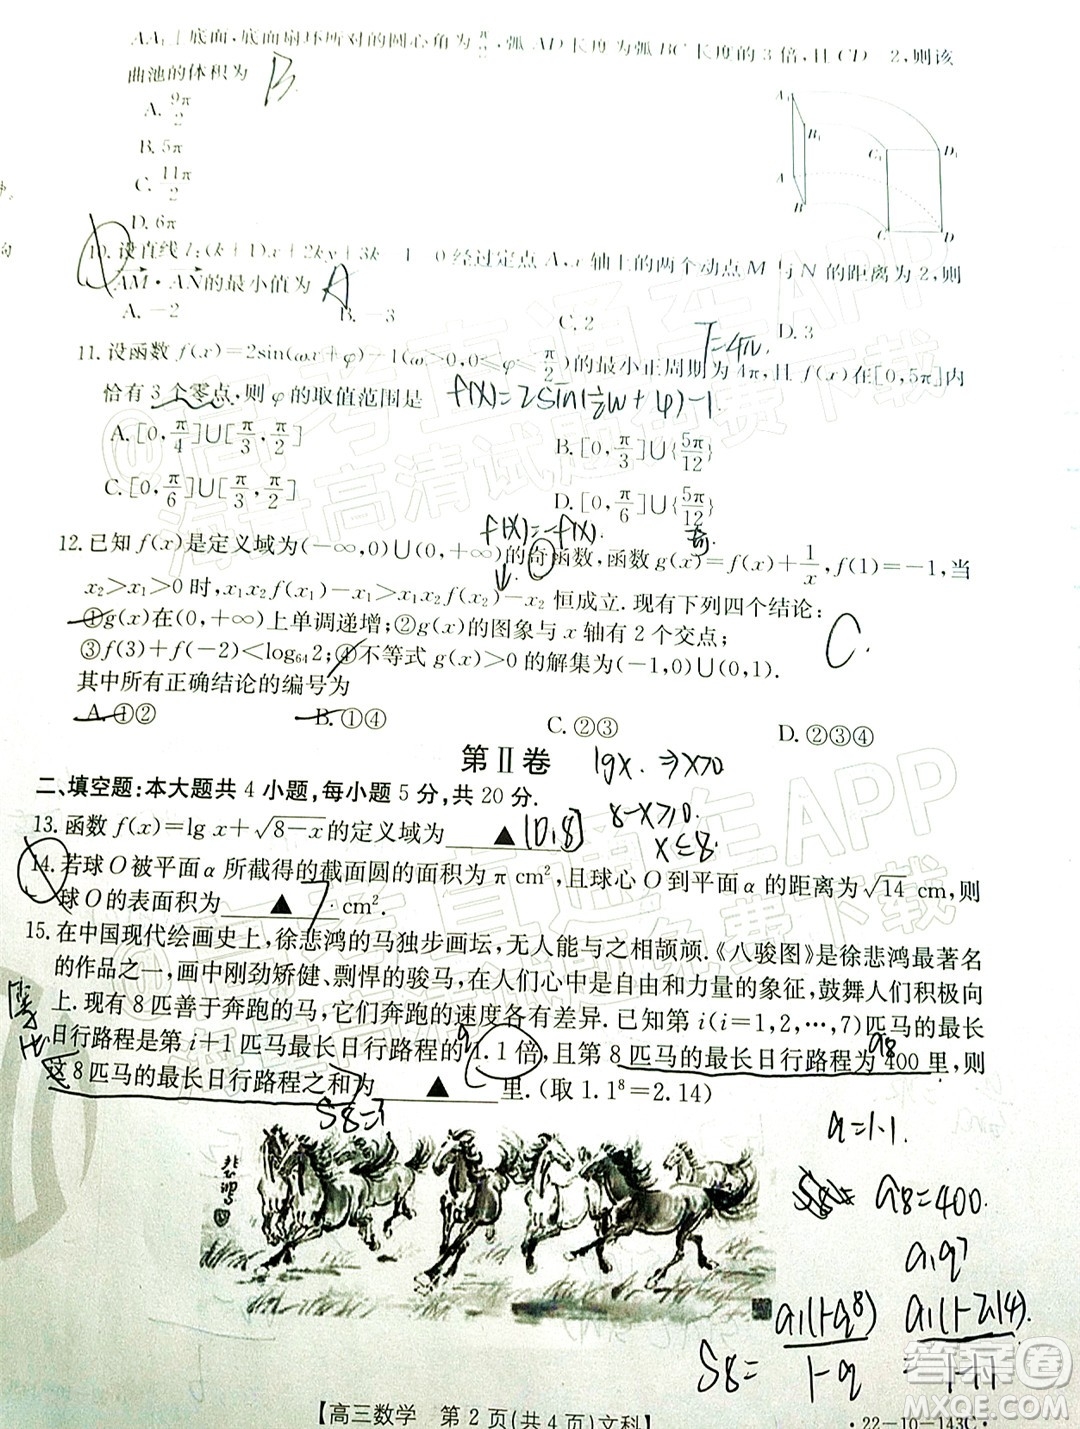 AA₁⊥底面,底面扇环所对的圆心角为π/2,弧AD长度为弧BC长度的3倍,且CD=2,则该
曲池的体积为 B
A. 9π/2
B. 5π
C. 11π/2
D. 6π
A₁
B₁
C₁
D₁
A
B
C
D
10. 设直线l:(k+1)x+2ky+3k-1=0经过定点A,x轴上的两个动点M与N的距离为2,则
AM·AN的最小值为 A
A. -2
B. -3
C. 2
D. 3
T=4π.
11. 设函数f(x)=2sin(ωx+φ)-1(ω>0,0≤φ≤π/2)的最小正周期为4π,且f(x)在[0,5π]内
恰有3个零点,则φ的取值范围是 f(x)=2sin(½w+φ)-1.
A. [0,π/4]∪[π/3,π/2]
B. [0,π/3]∪{5π/12}
C. [0,π/6]∪[π/3,π/2]
D. [0,π/6]∪{5π/12}
f(x)=-f(x). 奇
12. 已知f(x)是定义域为(-∞,0)∪(0,+∞)的奇函数,函数g(x)=f(x)+1/x,f(1)=-1,当
x₂>x₁>0时,x₁x₂f(x₁)-x₁>x₁x₂f(x₂)-x₂恒成立.现有下列四个结论:
①g(x)在(0,+∞)上单调递增;②g(x)的图象与x轴有2个交点;
③f(3)+f(-2)<log₆₄2;④不等式g(x)>0的解集为(-1,0)∪(0,1).
C.
其中所有正确结论的编号为
A. ①②
B. ①④
C. ②③
D. ②③④
第Ⅱ卷
lgx. ⇒x>0
二、填空题:本大题共4小题,每小题5分,共20分.
8-x≥0.
x≤8.
13. 函数f(x)=lg x+√(8-x)的定义域为 ▲ [0,8]
14. 若球O被平面α所截得的截面圆的面积为π cm²,且球心O到平面α的距离为√14 cm,则
球O的表面积为 ▲ cm².
15. 在中国现代绘画史上,徐悲鸿的马独步画坛,无人能与之相颉颃.《八骏图》是徐悲鸿最著名
的作品之一,画中刚劲矫健、剽悍的骏马,在人们心中是自由和力量的象征,鼓舞人们积极向
上.现有8匹善于奔跑的马,它们奔跑的速度各有差异.已知第i(i=1,2,…,7)匹马的最长
日行路程是第i+1匹马最长日行路程的1.1倍,且第8匹马的最长日行路程为400里,则
q
a8
这8匹马的最长日行路程之和为 ▲ 里.(取1.1⁸=2.14)
S8=?
悲鸿
a=1.1.
a8=400.
a₁q⁷
S8= a₁(1-q⁸)/1-q = a₁(1-2.14)/1-1.1
【高三数学 第2页(共4页)文科】
·22-10-143C·
@高考直通车APP
海量高清试题免费下载
@高考直通车APP
海量高清试题免费下载
答案圈
MXQE.COM